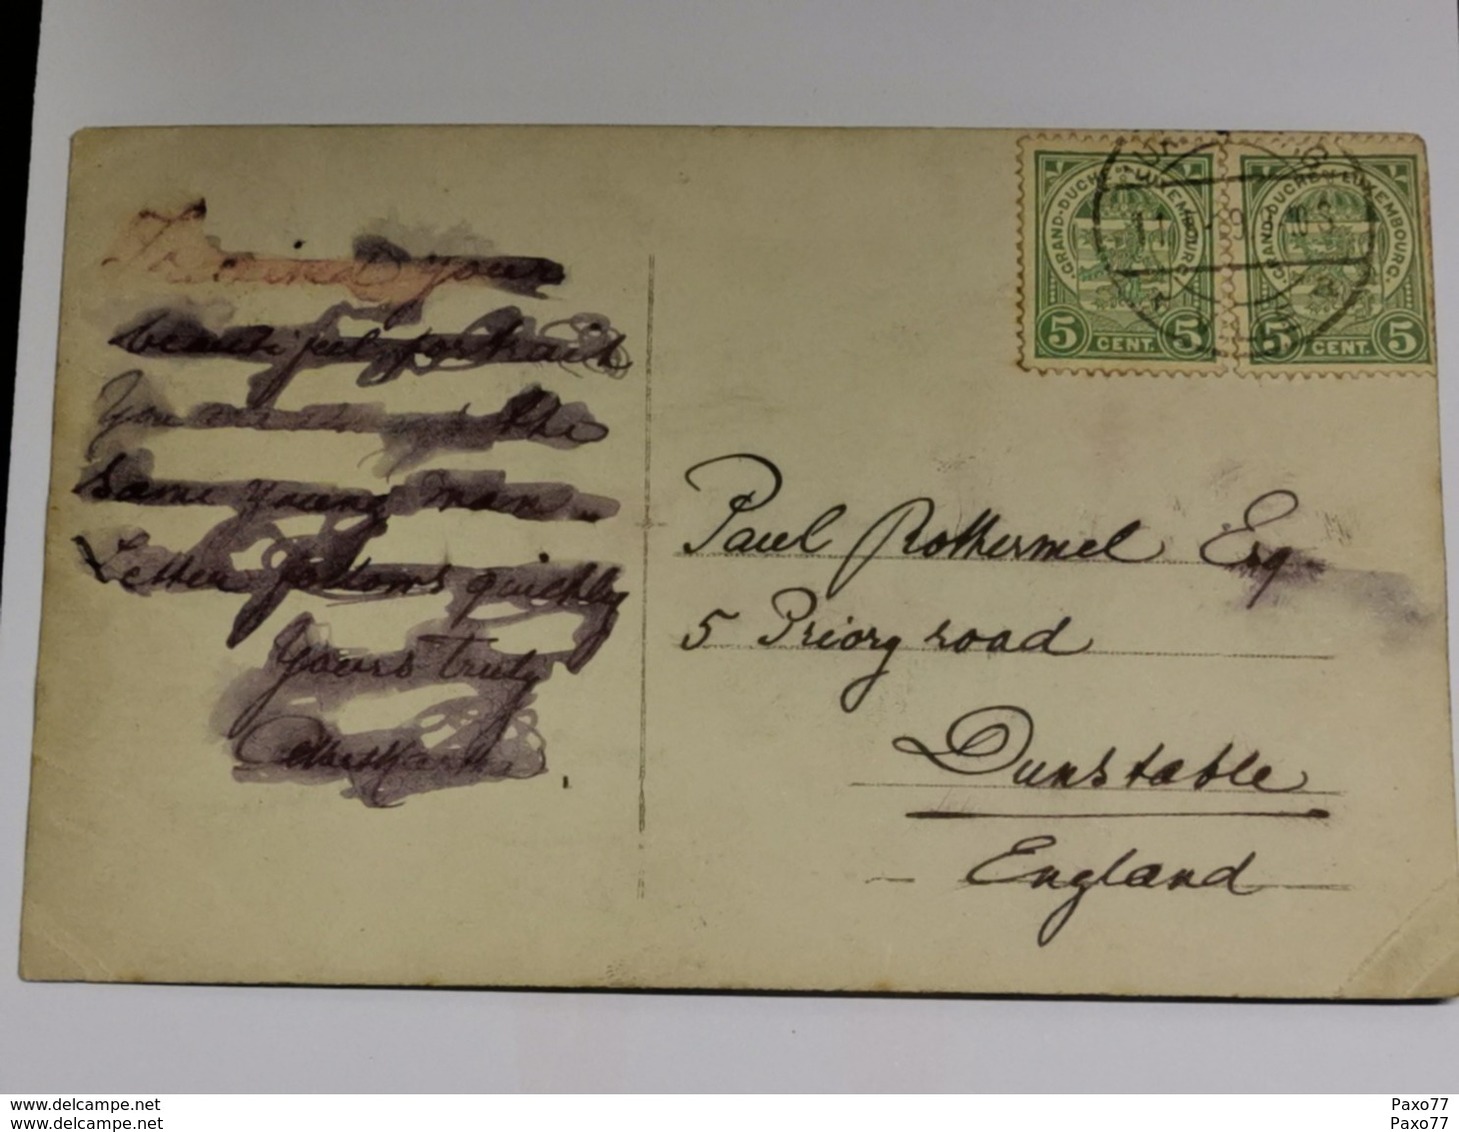 received your
beautiful portrait
You are the
same young man.
Letter follows quickly
Yours truly
GRAND-DUCHÉ DE LUXEMBOURG.
5 CENT. 5
GRAND-DUCHÉ DE LUXEMBOURG.
5 CENT. 5
Paul Rothermel Esq.
5 Priory road
Dunstable
England
delcampe.net
delcampe.net
Paxo77
Paxo77